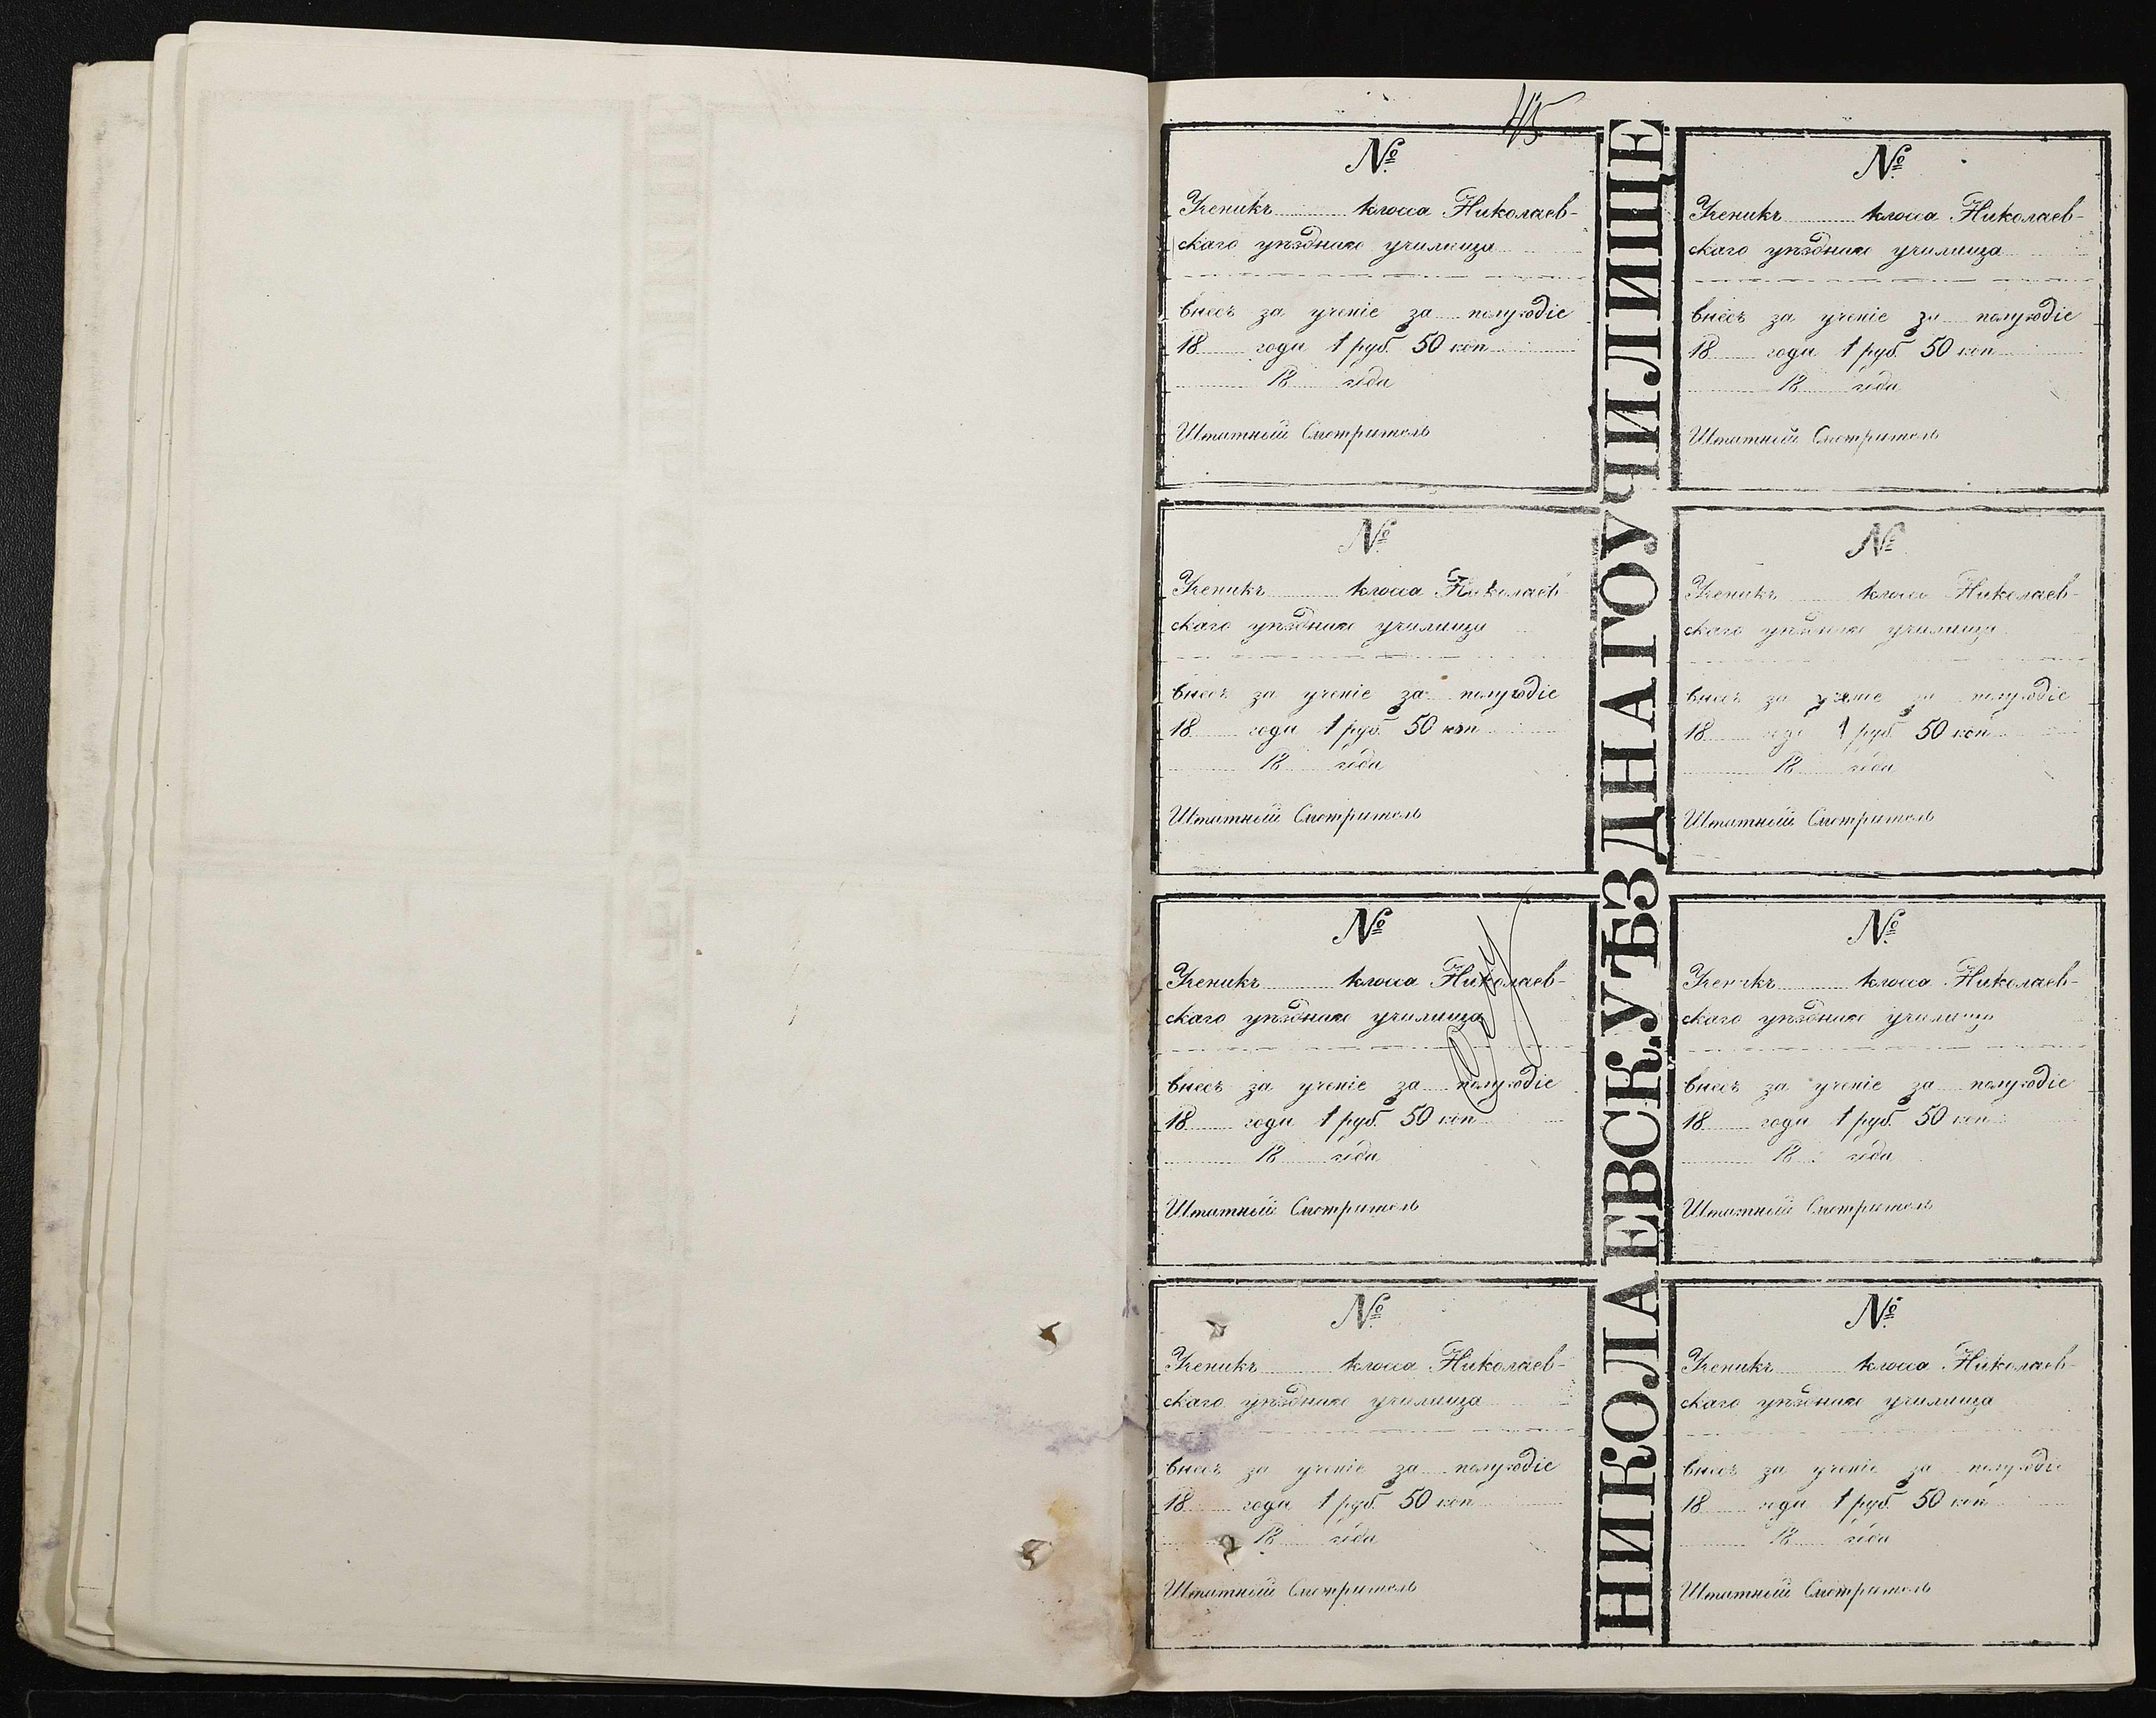 45
№
Ученикъ класса Николаев-
скаго уѣзднаго училища
внесъ за ученіе за полугодіе
18 года 1 руб. 50 коп
18 года
Штатный Смотритель
№
Ученикъ класса Николаев-
скаго уѣзднаго училища
внесъ за ученіе за полугодіе
18 года 1 руб. 50 коп
18 года
Штатный Смотритель
№
Ученикъ класса Николаев-
скаго уѣзднаго училища
внесъ за ученіе за полугодіе
18 года 1 руб. 50 коп
18 года
Штатный Смотритель
№
Ученикъ класса Николаев-
скаго уѣзднаго училища
внесъ за ученіе за полугодіе
18 года 1 руб. 50 коп
18 года
Штатный Смотритель
НИКОЛАЕВСК.УѢЗДНАГОУЧИЛИЩЕ
№
Ученикъ класса Николаев-
скаго уѣзднаго училища
внесъ за ученіе за полугодіе
18 года 1 руб. 50 коп
18 года
Штатный Смотритель
№
Ученикъ класса Николаев-
скаго уѣзднаго училища
внесъ за ученіе за полугодіе
18 года 1 руб. 50 коп
18 года
Штатный Смотритель
№
Ученикъ класса Николаев-
скаго уѣзднаго училища
внесъ за ученіе за полугодіе
18 года 1 руб. 50 коп
18 года
Штатный Смотритель
№
Ученикъ класса Николаев-
скаго уѣзднаго училища
внесъ за ученіе за полугодіе
18 года 1 руб. 50 коп
18 года
Штатный Смотритель